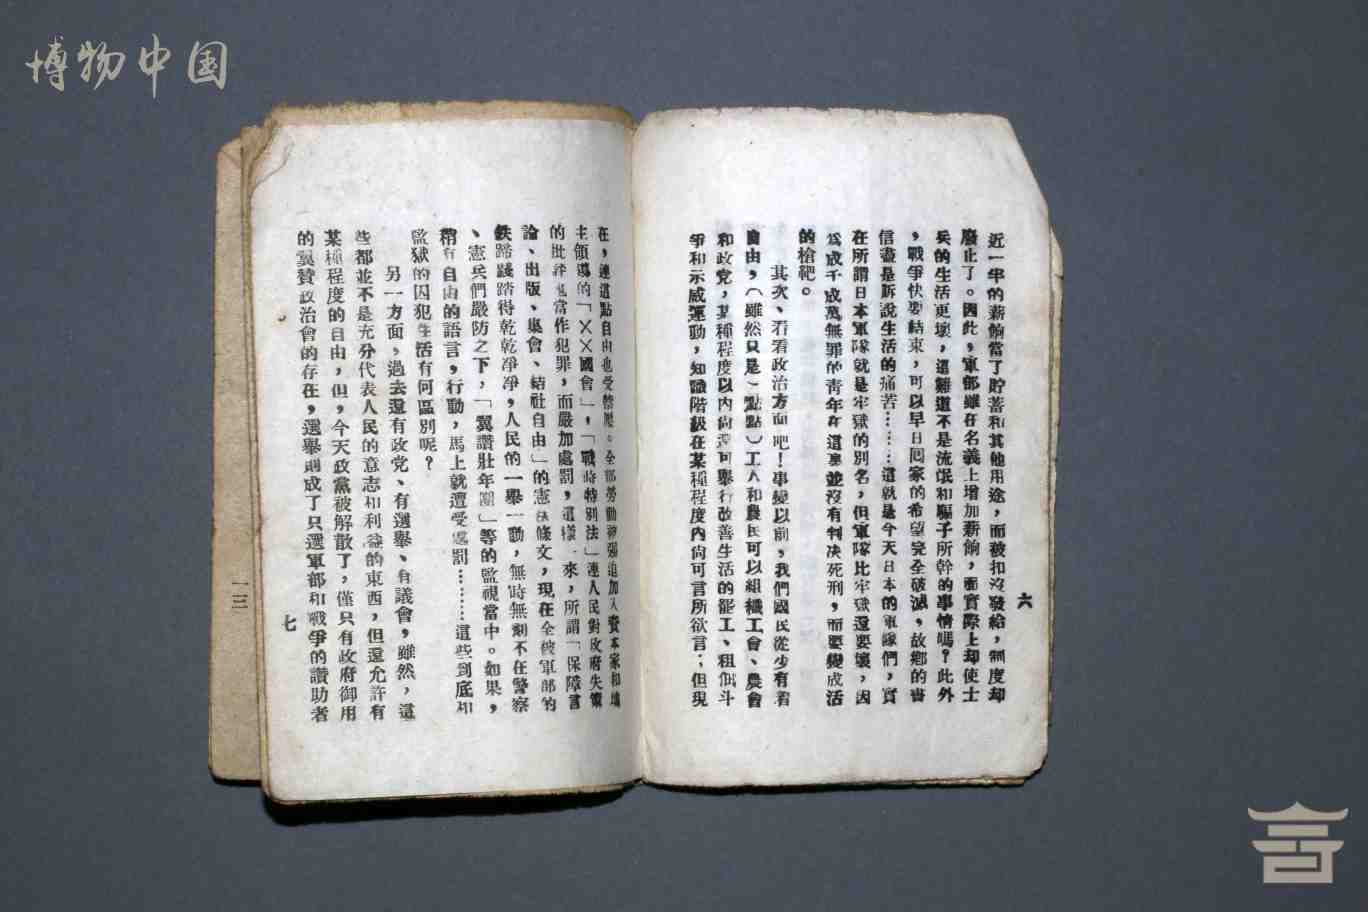 博物中国
六
近一年的薪餉當了貯蓄和其他用途，而被扣沒發給，制度却
廢止了。因此，軍部雖在名義上增加薪餉，而實際上却使士
兵的生活更壞，這難道不是流氓和騙子所幹的事情嗎？此外
，戰爭快要結束，可以早日回家的希望完全破滅，故鄉的書
信盡是訴說生活的痛苦………這就是今天日本的軍隊們，實
在所謂日本軍隊就是牢獄的別名，但軍隊比牢獄還要壞，因
為成千成萬無罪的青年在這裏並沒有判决死刑，而要變成活
的槍靶。
其次、看看政治方面吧！事變以前，我們國民從少有着
自由，（雖然只是一點點）工人和農民可以組織工會、農會
和政党，某種程度以內尚還可舉行改善生活的罷工、租佃斗
爭和示威運動，知識階級在某種程度內尚可言所欲言；但現
在，連這點自由也受禁壓。全部勞動被强迫加入資本家和地
主領導的「××國會」，「戰時特別法」連人民對政府失策
的批評也當作犯罪，而嚴加處罰，這樣一來，所謂「保障言
論、出版、集會、結社自由」的憲法條文，現在全被軍部的
鉄蹄踐踏得乾乾凈凈，人民的一舉一動，無時無刻不在警察
、憲兵們嚴防之下，「翼讚壯年團」等的監視當中。如果，
稍有自由的語言，行動，馬上就遭受處罰………這些到底和
監獄的囚犯生活有何區別呢？
另一方面，過去還有政党、有選舉、有議會，雖然，這
些都並不是充分代表人民的意志和利益的東西，但還允許有
某種程度的自由，但，今天政黨被解散了，僅只有政府御用
的翼贊政治會的存在，選舉則成了只選軍部和戰爭的讚助者
七
一三